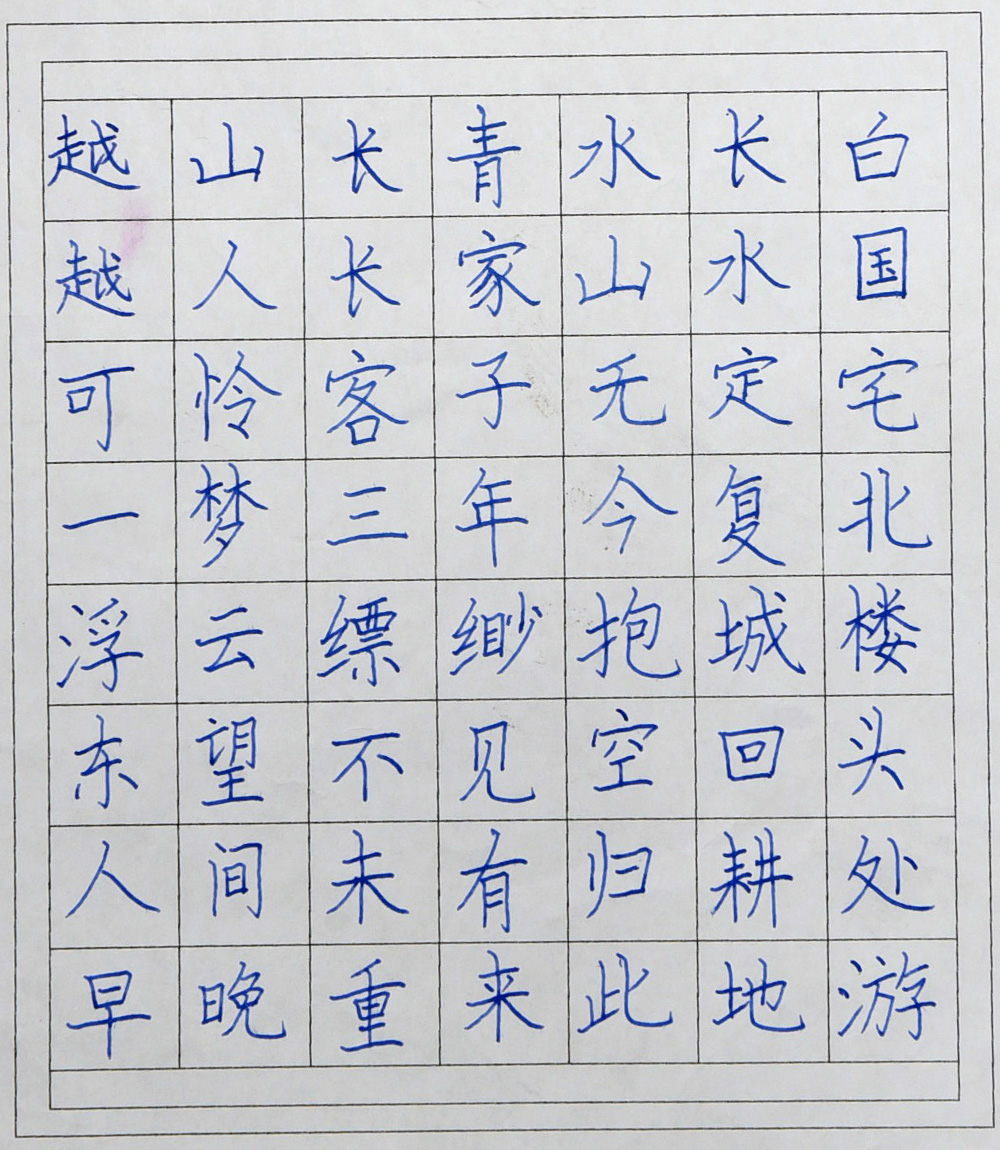 越山长青水长白
越人长家山水国
可怜客子无定宅
一梦三年今复北
浮云缥缈抱城楼
东望不见空回头
人间未有归耕处
早晚重来此地游